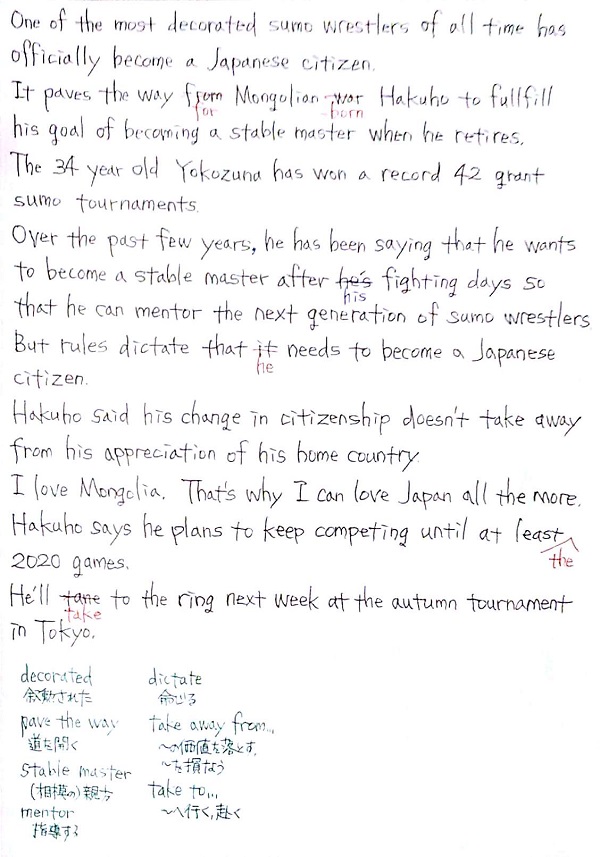 One of the most decorated sumo wrestlers of all time has
officially become a Japanese citizen.
It paves the way from Mongolian war Hakuho to fullfill
for born
his goal of becoming a stable master when he retires.
The 34 year old Yokozuna has won a record 42 grant
sumo tournaments.
Over the past few years, he has been saying that he wants
to become a stable master after he's fighting days so
his
that he can mentor the next generation of sumo wrestlers
But rules dictate that it needs to become a Japanese
he
citizen.
Hakuho said his change in citizenship doesn't take away
from his appreciation of his home country
I love Mongolia. That's why I can love Japan all the more.
Hakuho says he plans to keep competing until at least
the
2020 games.
He'll tane to the ring next week at the autumn tournament
take
in Tokyo.
decorated dictate
された 命じる
pave the way take away from...
道を開く 〜の価値を落とす,
stable master 〜を損なう
(相撲の)親方 take to...
mentor 〜へ行く,赴く
指導する